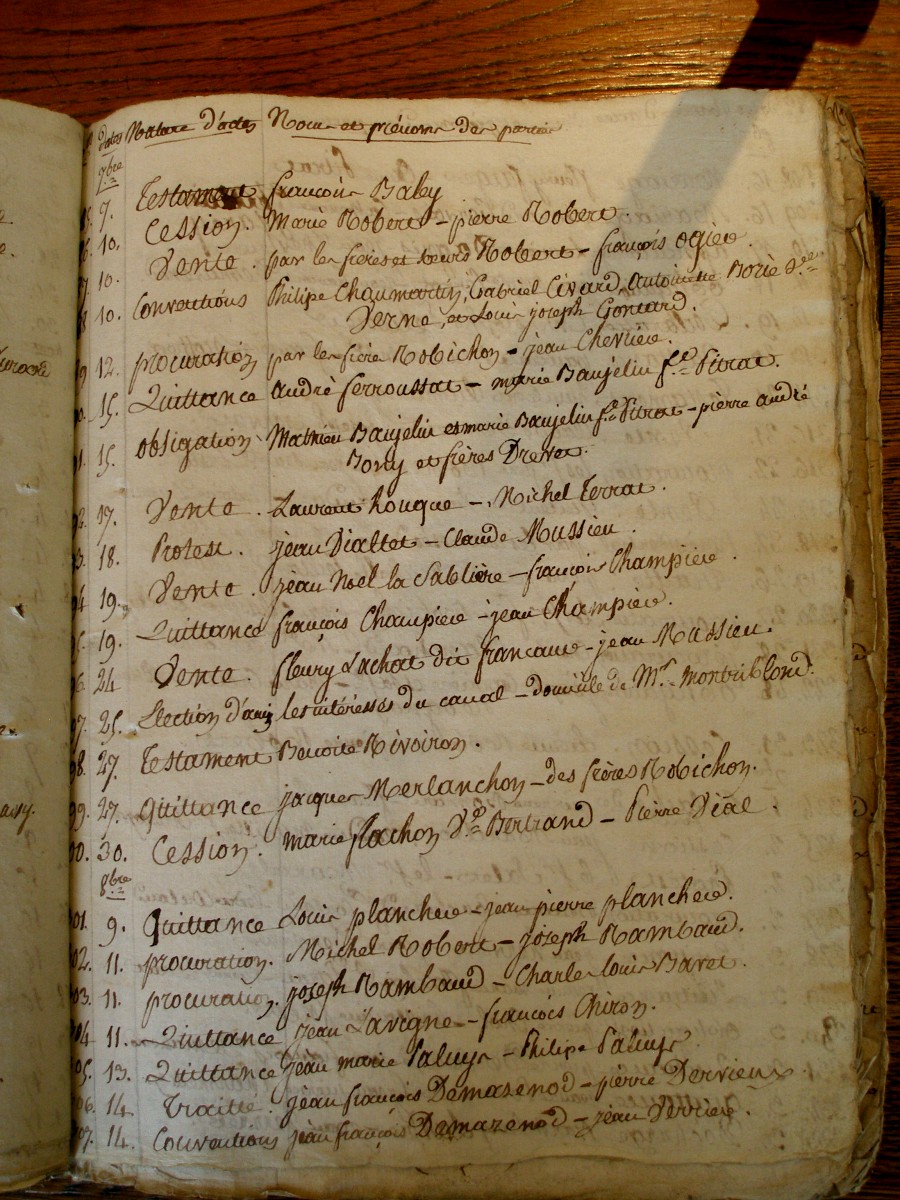 dates Nature d'actes Noms et prénoms des parties
7bre
7. Testament françois Baley
10. Cession. Marie Robert - pierre Robert.
10. Vente. par les frères et soeurs Robert - françois ogier.
10. Conventions Philipe Chaumartin, Gabriel Civard, Antoinette Borie
Verne, et Louis joseph Gontard.
12. procuration par les frère Robichon - jean Chevrière.
15. Quittance andré ferroussat - marie Baujelin f.e Pitrat.
15. obligation Mathieu Baujelin et marie Baujelin f.e Pitrat - pierre andré
Bony et frères Drevet.
17. Vente. Laurent - Michel Terrat.
18. Protest. jean Vialtet - Claude Mussieu.
19. Vente. jean Noel la Sablière - françois Champière.
19. Quittance françois Champière - jean Champière.
24 Vente. fleury Lachat dit - jean Mussieu.
25. Election d'ami les intéressés du canal - domicile de Mr. montriblond.
27. Testament Benoite Rivoiron.
27. Quittance jacques Merlanchon - des frères Robichon.
30. Cession. marie flachon V.e Bertrand - Pierre Vial.
8bre
01. 9. Quittance Louis planchere - jean pierre planchere.
02. 11. procuration. Michel Robert - joseph Rambaud.
03. 11. procuration. joseph Rambaud - Charle louis Baret.
04 11. Quittance jean Lavigne - françois Chiron.
05. 13. Quittance jean marie Paluys - Philipe Paluys
06. 14. Traitté. jean françois Demazenod - pierre Dervieux.
07. 14. Conventions jean françois Demazenod - jean Verrière.